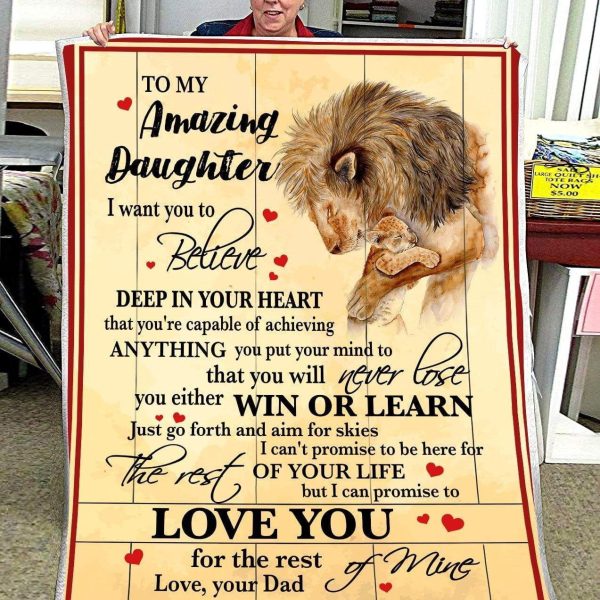 TO MY
Amazing
Daughter
I want you to
Believe
DEEP IN YOUR HEART
that you're capable of achieving
ANYTHING you put your mind to
that you will never lose
you either WIN OR LEARN
Just go forth and aim for skies
I can't promise to be here for
The rest OF YOUR LIFE
but I can promise to
LOVE YOU
for the rest of Mine
Love, your Dad
LARGE QUILT SH
TOTE BAGS
NOW
$5.00